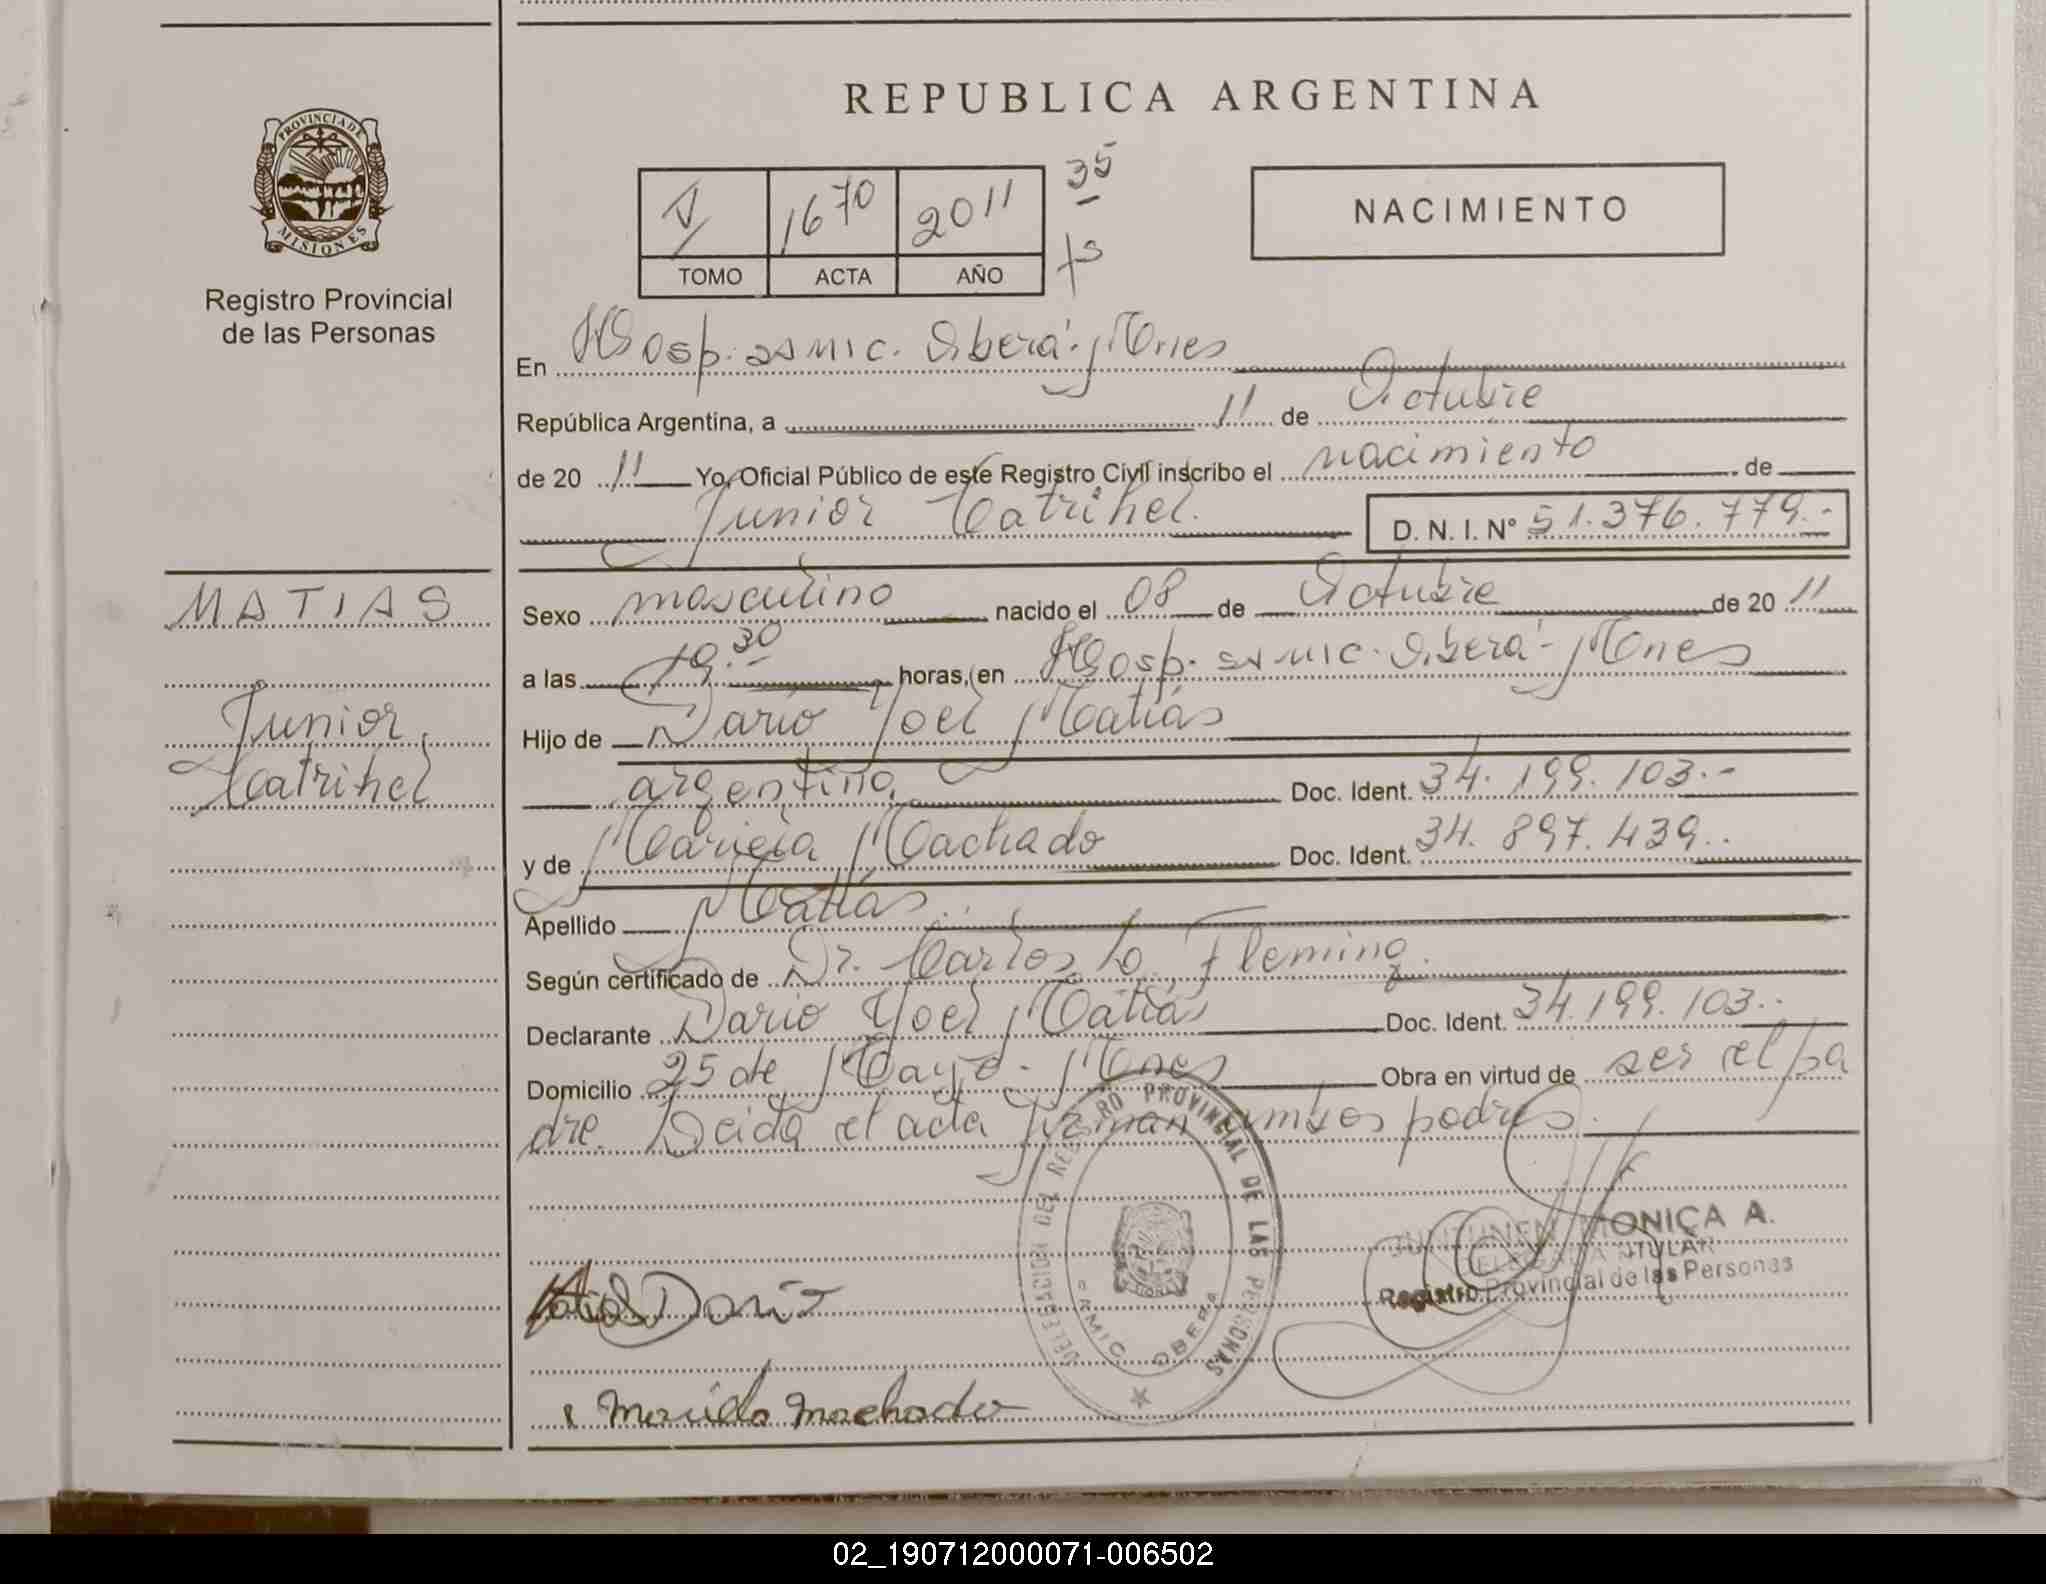 REPUBLICA ARGENTINA
PROVINCIA DE MISIONES
Registro Provincial
de las Personas
V 1670 2011 35
TOMO ACTA AÑO fs
NACIMIENTO
En Hosp. Samic. Oberá. Mnes
República Argentina, a 11 de Octubre
de 20 11 Yo, Oficial Público de este Registro Civil inscribo el nacimiento de
Junior Catrihel. D. N. I. Nº 51.376.779.-
MATIAS
Junior
Catrihel
Sexo masculino nacido el 08 de Octubre de 20 11
a las 19.30 horas, en Hosp. Samic. Oberá - Mnes
Hijo de Dario Yoel Matías
argentino. Doc. Ident. 34.199.103.-
y de Mariela Machado Doc. Ident. 34.897.439..
Apellido Matías.
Según certificado de Dr. Carlos Fleming.
Declarante Dario Yoel Matías Doc. Ident. 34.199.103..
Domicilio 25 de Mayo - Mnes Obra en virtud de ser el pa
dre. Leida el acta firman ambos padres.
DELEGACION DEL REGISTRO PROVINCIAL DE LAS PERSONAS
OBERA
MONICA A.
TITULAR
Registro Provincial de las Personas
Matias Dario
Mariela Machado
02_190712000071-006502